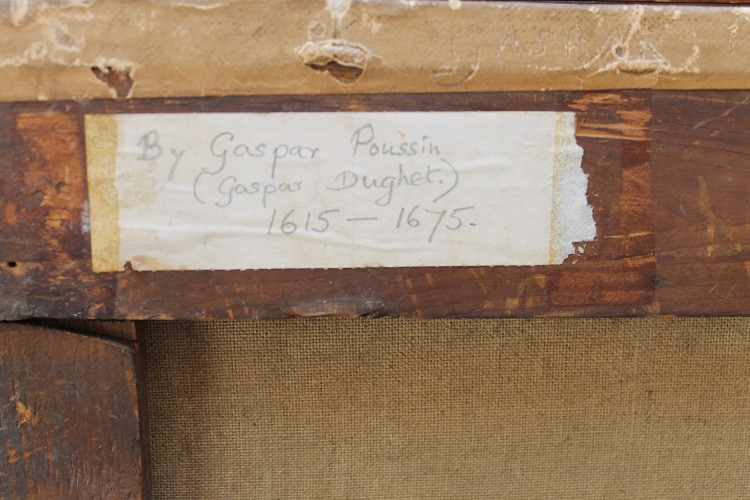 GASPAR
By Gaspar Poussin
(Gaspar Dughet.)
1615 — 1675.